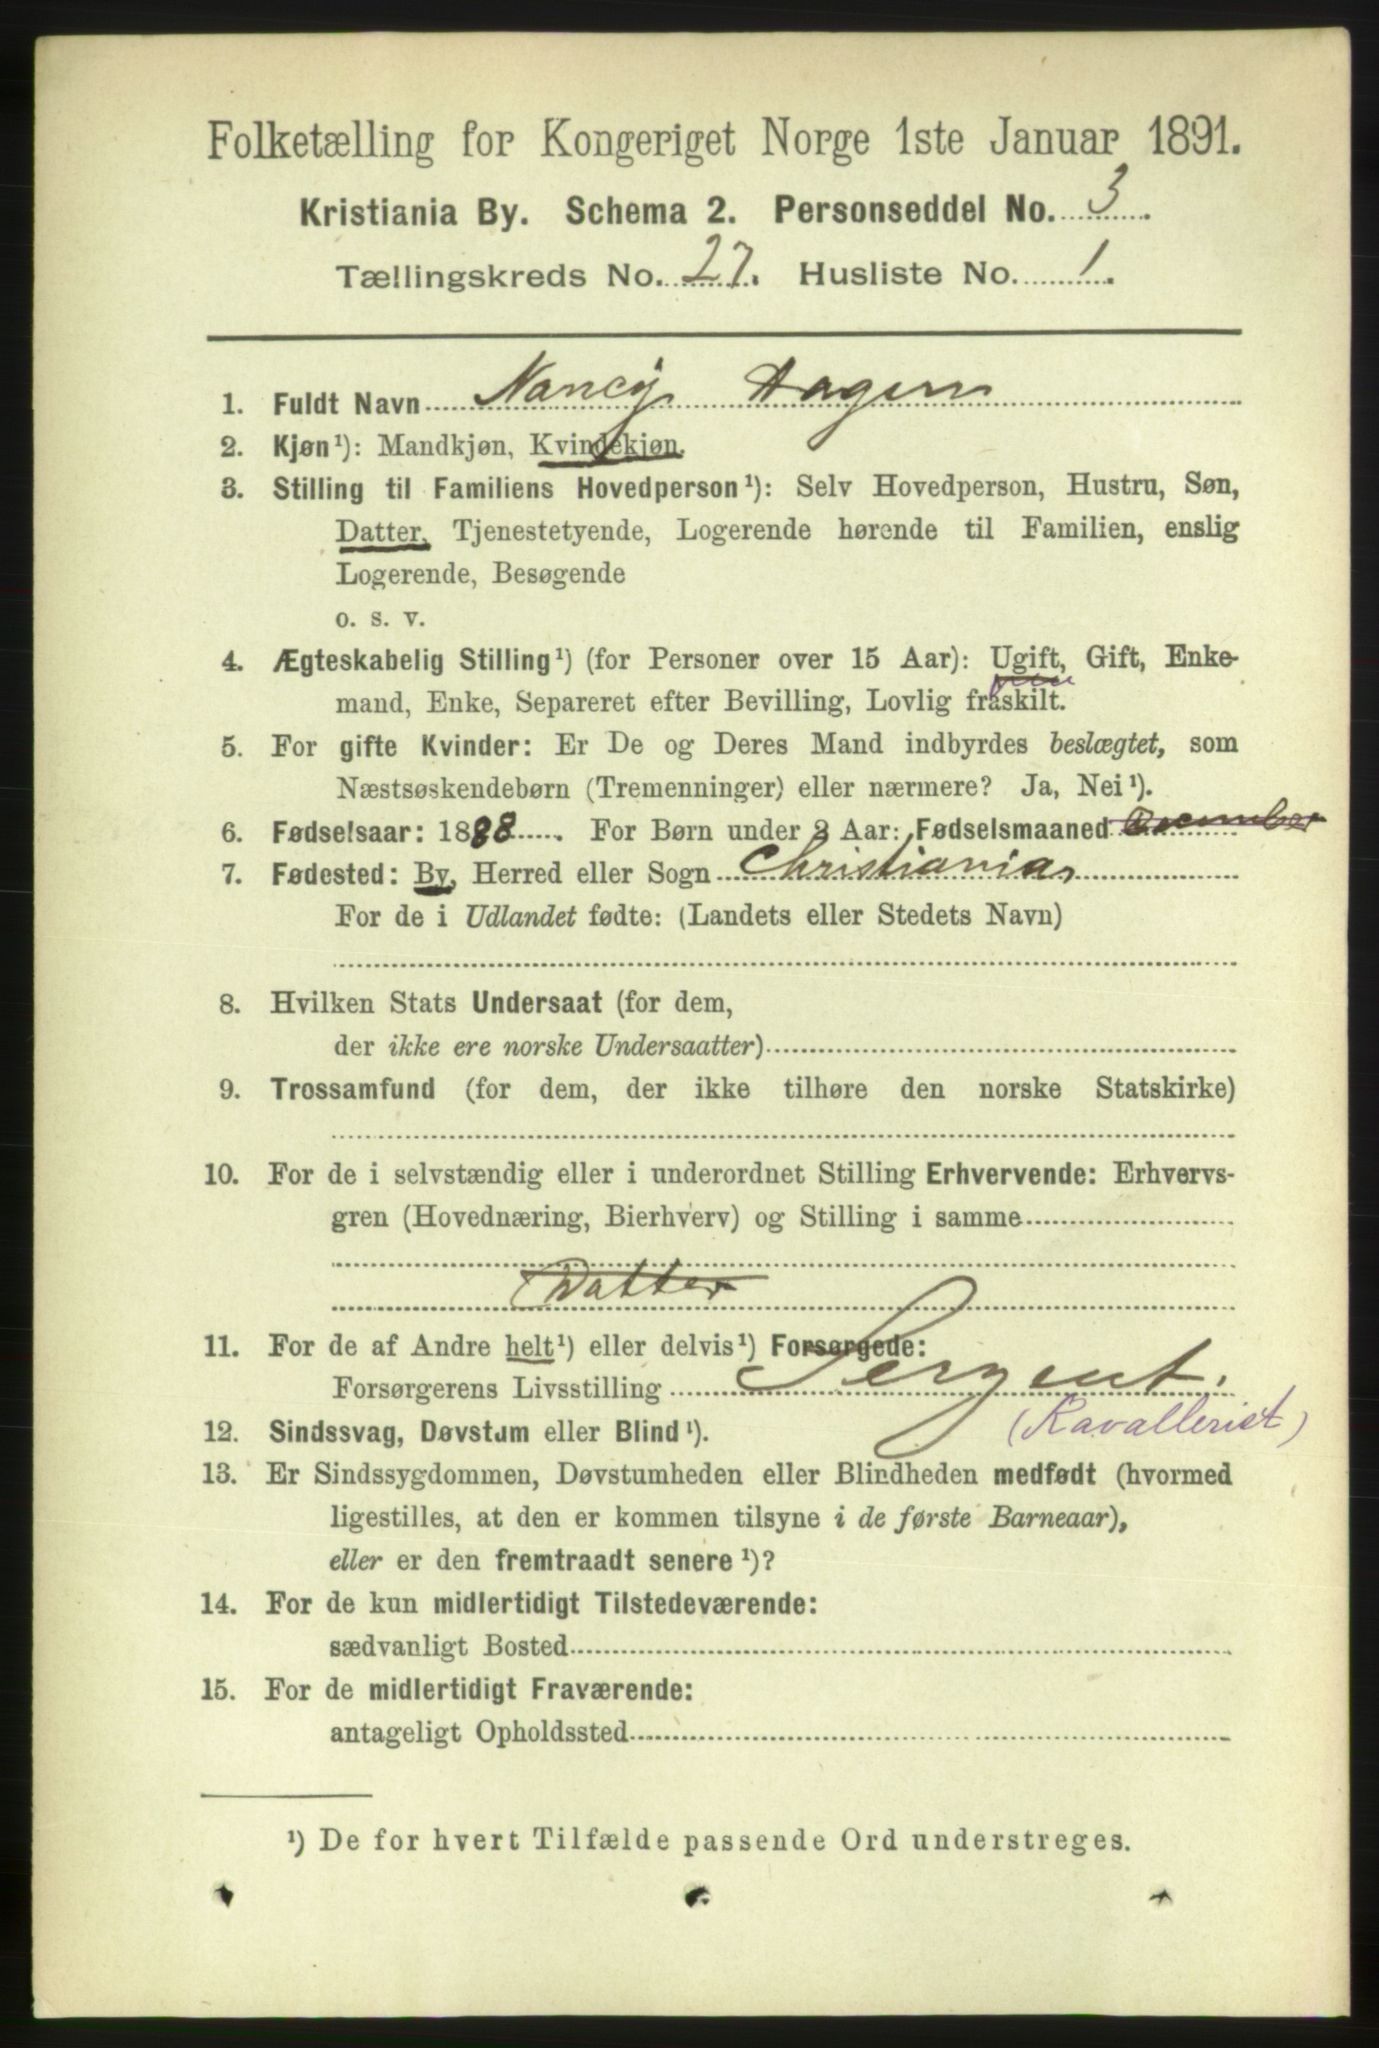 Folketælling for Kongeriget Norge 1ste Januar 1891.
Kristiania By. Schema 2. Personseddel No. 3.
Tællingskreds No. 27. Husliste No. 1.
1. Fuldt Navn Nancy Hagen
2. Kjøn¹): Mandkjøn, Kvindekjøn.
3. Stilling til Familiens Hovedperson¹): Selv Hovedperson, Hustru, Søn,
Datter, Tjenestetyende, Logerende hørende til Familien, enslig
Logerende, Besøgende
o. s. v.
4. Ægteskabelig Stilling¹) (for Personer over 15 Aar): Ugift, Gift, Enke-
mand, Enke, Separeret efter Bevilling, Lovlig fraskilt.
5. For gifte Kvinder: Er De og Deres Mand indbyrdes beslægtet, som
Næstsøskendebørn (Tremenninger) eller nærmere? Ja, Nei¹).
6. Fødselsaar: 1888. For Børn under 2 Aar: Fødselsmaaned December
7. Fødested: By, Herred eller Sogn Christiania
For de i Udlandet fødte: (Landets eller Stedets Navn)
8. Hvilken Stats Undersaat (for dem,
der ikke ere norske Undersaatter)
9. Trossamfund (for dem, der ikke tilhøre den norske Statskirke)
10. For de i selvstændig eller i underordnet Stilling Erhvervende: Erhvervs-
gren (Hovednæring, Bierhverv) og Stilling i samme
Datter
11. For de af Andre helt¹) eller delvis¹) Forsørgede:
Forsørgerens Livsstilling Sergent.
(Kavallerist)
12. Sindssvag, Døvstum eller Blind¹).
13. Er Sindssygdommen, Døvstumheden eller Blindheden medfødt (hvormed
ligestilles, at den er kommen tilsyne i de første Barneaar),
eller er den fremtraadt senere¹)?
14. For de kun midlertidigt Tilstedeværende:
sædvanligt Bosted
15. For de midlertidigt Fraværende:
antageligt Opholdssted
¹) De for hvert Tilfælde passende Ord understreges.